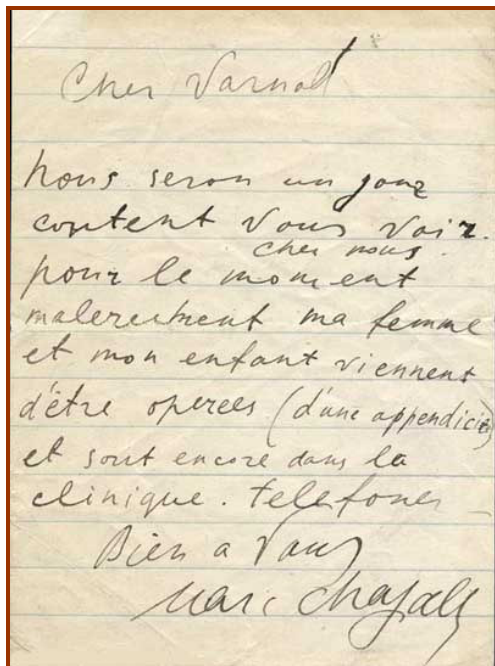 Cher Varnod
nous seron un jour
content vous voir.
cher nous.
pour le moment
malereusment ma femme
et mon enfant viennent
d'être operees (d'une appendicite)
et sont encore dans la
clinique. telefones
Bien a vous
Marc Chagall